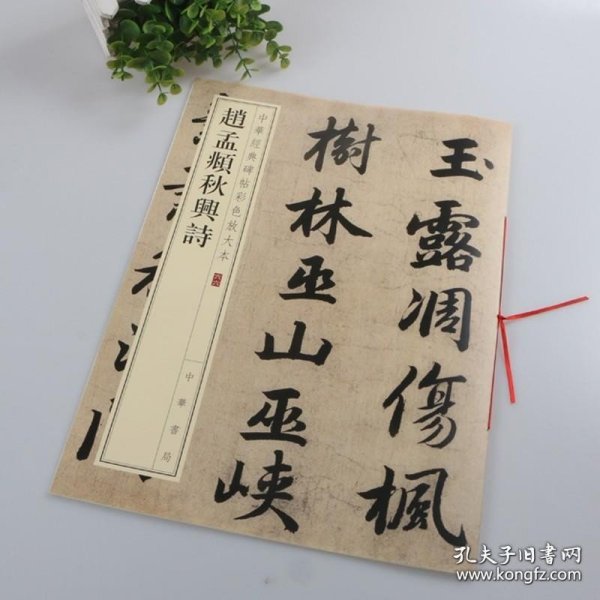 玉露凋傷楓
樹林巫山巫峽
中華經典碑帖彩色放大本
趙孟頫秋興詩
中華書局
孔夫子旧书网
www.kongfz.com